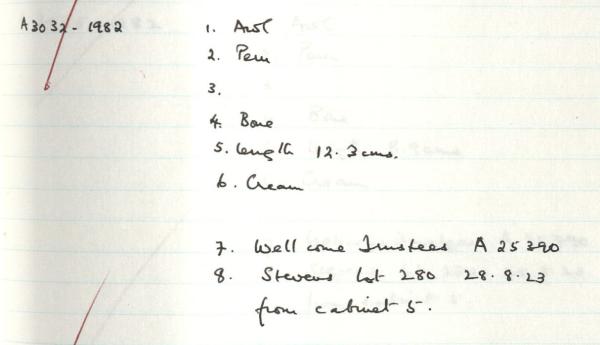 A3032-1982
1. Awl
2. Peru
3.
4. Bone
5. length 12.3cms.
6. Cream
7. Wellcome Trustees A 25390
8. Stevens lot 280 28.8.23
from cabinet 5.